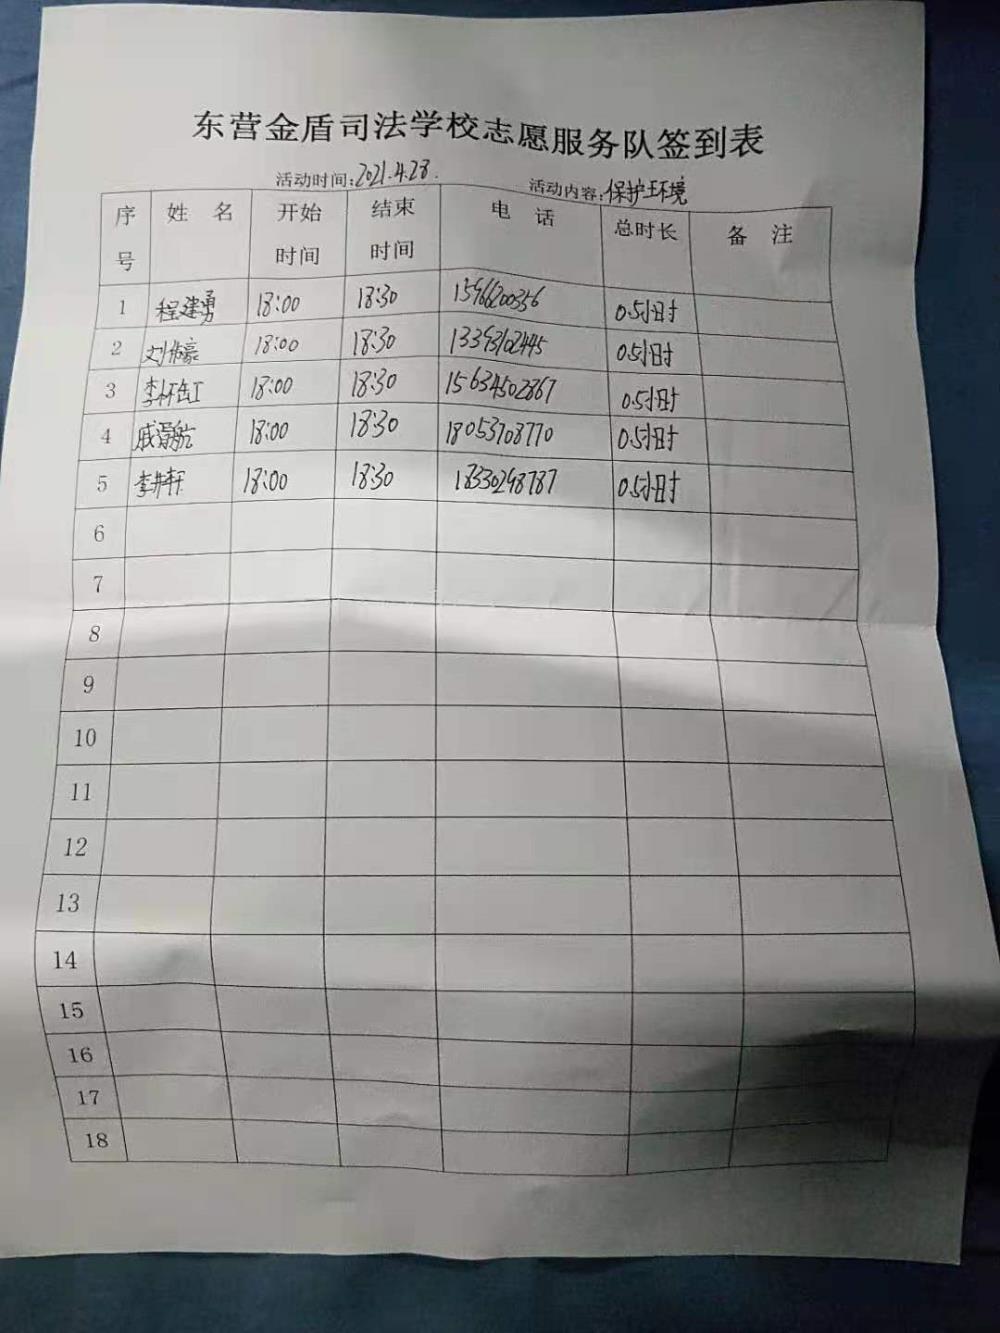 东营金盾司法学校志愿服务队签到表
活动时间:2021.4.28. 活动内容:保护环境
序号 姓 名 开始时间 结束时间 电 话 总时长 备 注
1 程建勇 18:00 18:30 15966200356 0.5小时
2 刘伟豪 18:00 18:30 13393102445 0.5小时
3 李 18:00 18:30 15634502867 0.5小时
4 戚 航 18:00 18:30 18053708770 0.5小时
5 李 轩 18:00 18:30 18330298787 0.5小时
6
7
8
9
10
11
12
13
14
15
16
17
18